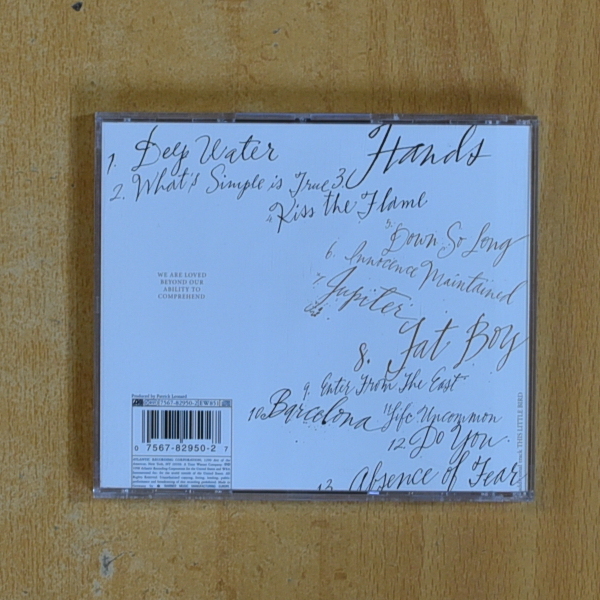 1. Deep Water
2. What's Simple is True 3. Hands
4. Kiss the Flame
5. Down So Long
6. Innocence Maintained
7. Jupiter
8. Fat Boy
9. Enter From The East
10. Barcelona 11. Life Uncommon
12. Do You
13. Absence of Fear
WE ARE LOVED
BEYOND OUR
ABILITY TO
COMPREHEND
Produced by Patrick Leonard
0 7567-82950-2 7
THIS LITTLE BIRD